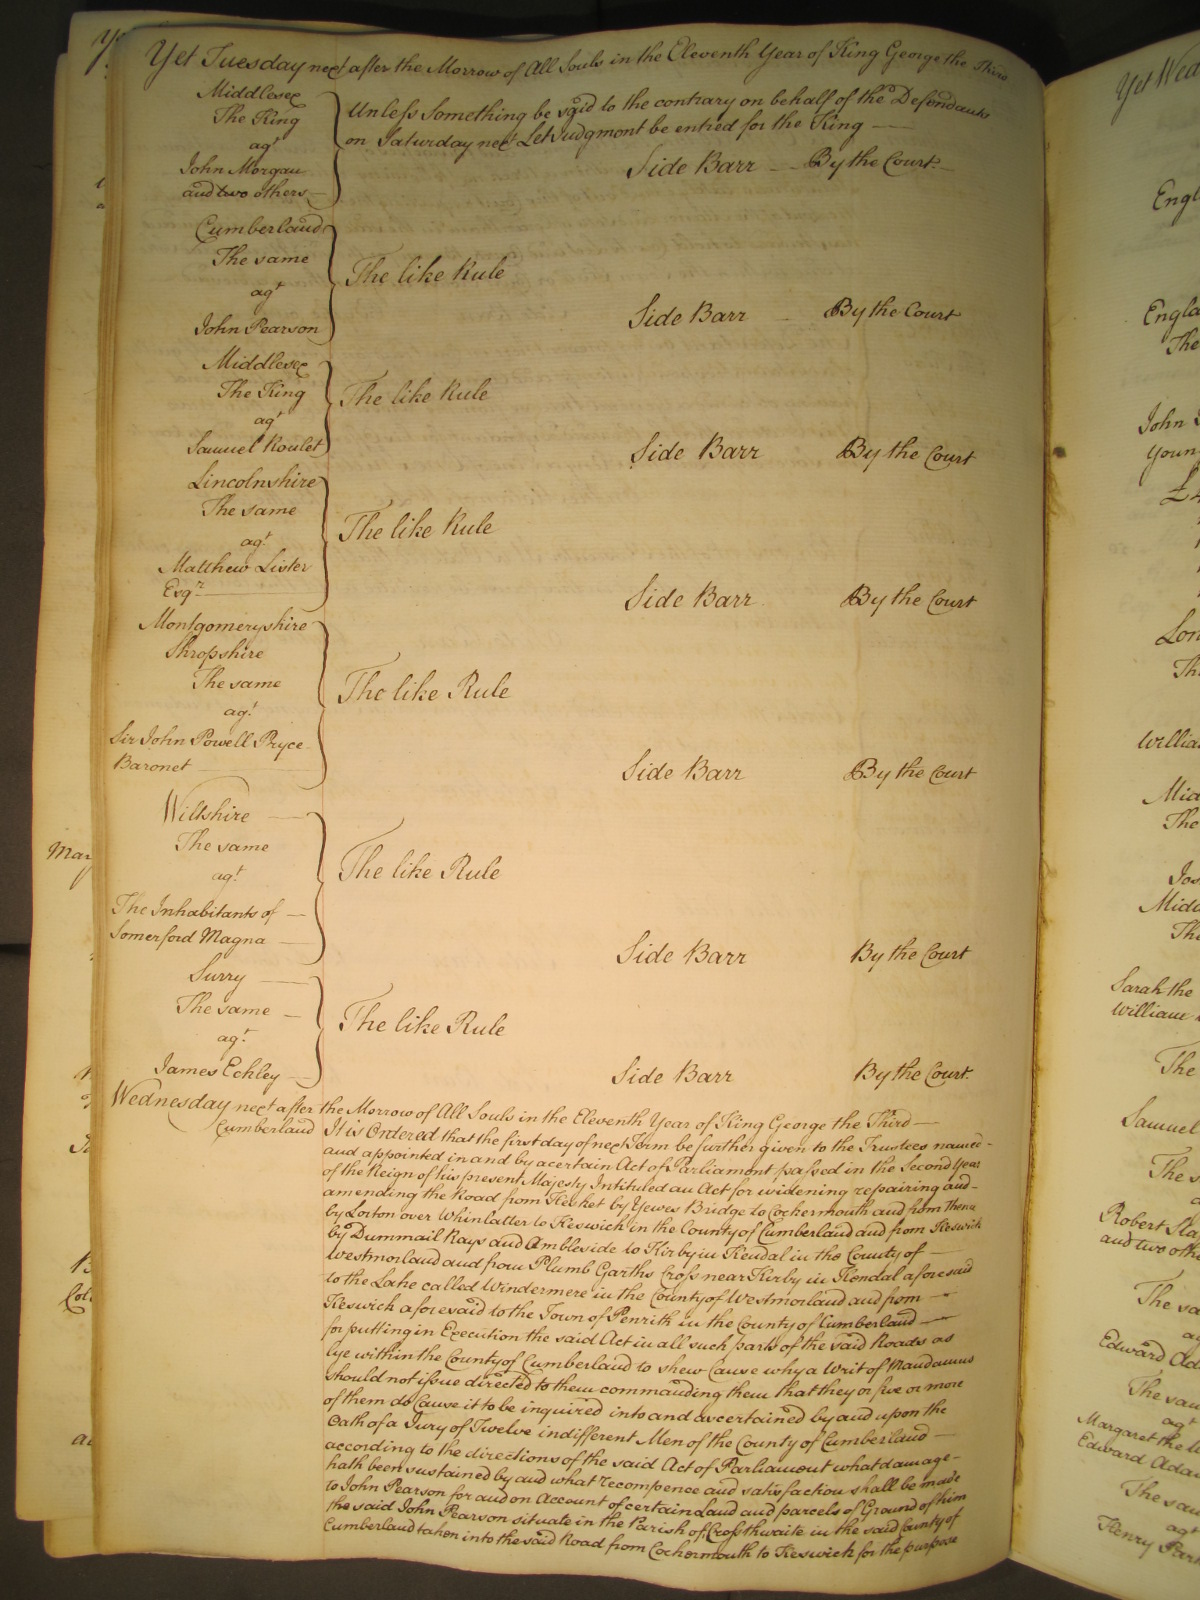 Yet Tuesday next after the Morrow of All Souls in the Eleventh Year of King George the Third
Middlesex
The King
agt
John Morgan
and two others
Unless something be said to the contrary on behalf of the Defendants
on Saturday next Let Judgment be entred for the King
Side Barr By the Court
Cumberland
The same
agt
John Pearson
The like Rule
Side Barr By the Court
Middlesex
The King
agt
Samuel Roulet
The like Rule
Side Barr By the Court
Lincolnshire
The same
agt
Matthew Lister
Esqr
The like Rule
Side Barr By the Court
Montgomeryshire
Shropshire
The same
agt
Sir John Powell Pryce
Baronet
The like Rule
Side Barr By the Court
Wiltshire
The same
agt
The Inhabitants of
Somerford Magna
The like Rule
Side Barr By the Court
Surry
The same
agt
James Echley
The like Rule
Side Barr By the Court
Wednesday next after the Morrow of All Souls in the Eleventh Year of King George the Third
Cumberland It is Ordered that the first day of next Term be further given to the Trustees named
and appointed in and by a certain Act of Parliament passed in the Second Year
of the Reign of his present Majesty Intituled an Act for widening repairing and
amending the Road from Hesket by Yewes Bridge to Cockermouth and from thence
by Lorton over Whinlatter to Keswick in the County of Cumberland and from Keswick
by Dummail Rays and Ambleside to Kirby in Kendal in the County of
Westmorland and from Plumb Garths Cross near Kirby in Kendal aforesaid
to the Lake called Windermere in the County of Westmorland and from
Keswick aforesaid to the Town of Penrith in the County of Cumberland
for putting in Execution the said Act in all such parts of the said Roads as
lye within the County of Cumberland to shew Cause why a Writ of Mandamus
should not issue directed to them commanding them that they or five or more
of them do Cause it to be inquired into and ascertained by and upon the
Oath of a Jury of Twelve indifferent Men of the County of Cumberland
according to the directions of the said Act of Parliament what damage
hath been sustained by and what recompence and satisfaction shall be made
to John Pearson for and on Account of certain Land and parcels of Ground of him
the said John Pearson situate in the Parish of Crosthwaite in the said County of
Cumberland taken into the said Road from Cockermouth to Keswick for the purpose
Yet Wed
Engl
Engla
The
John
Young
Lon
The
Willia
Mid
The
Jos
Midd
The
Sarah the
William
The
Samuel
The s
Robert
and two oth
The sa
Edward Ad
The sam
agt
Margaret the
Edward Adam
The sam
agt
Henry